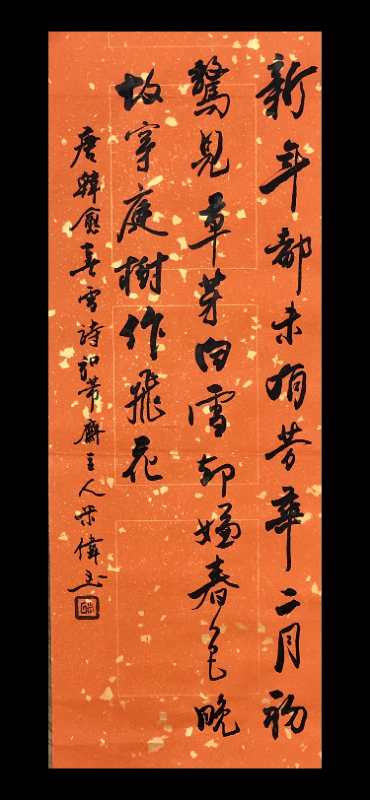 新年都未有芳華二月初
驚見草芽白雪却嫌春色晚
故穿庭樹作飛花
唐韓愈春雪詩齋主人偉書